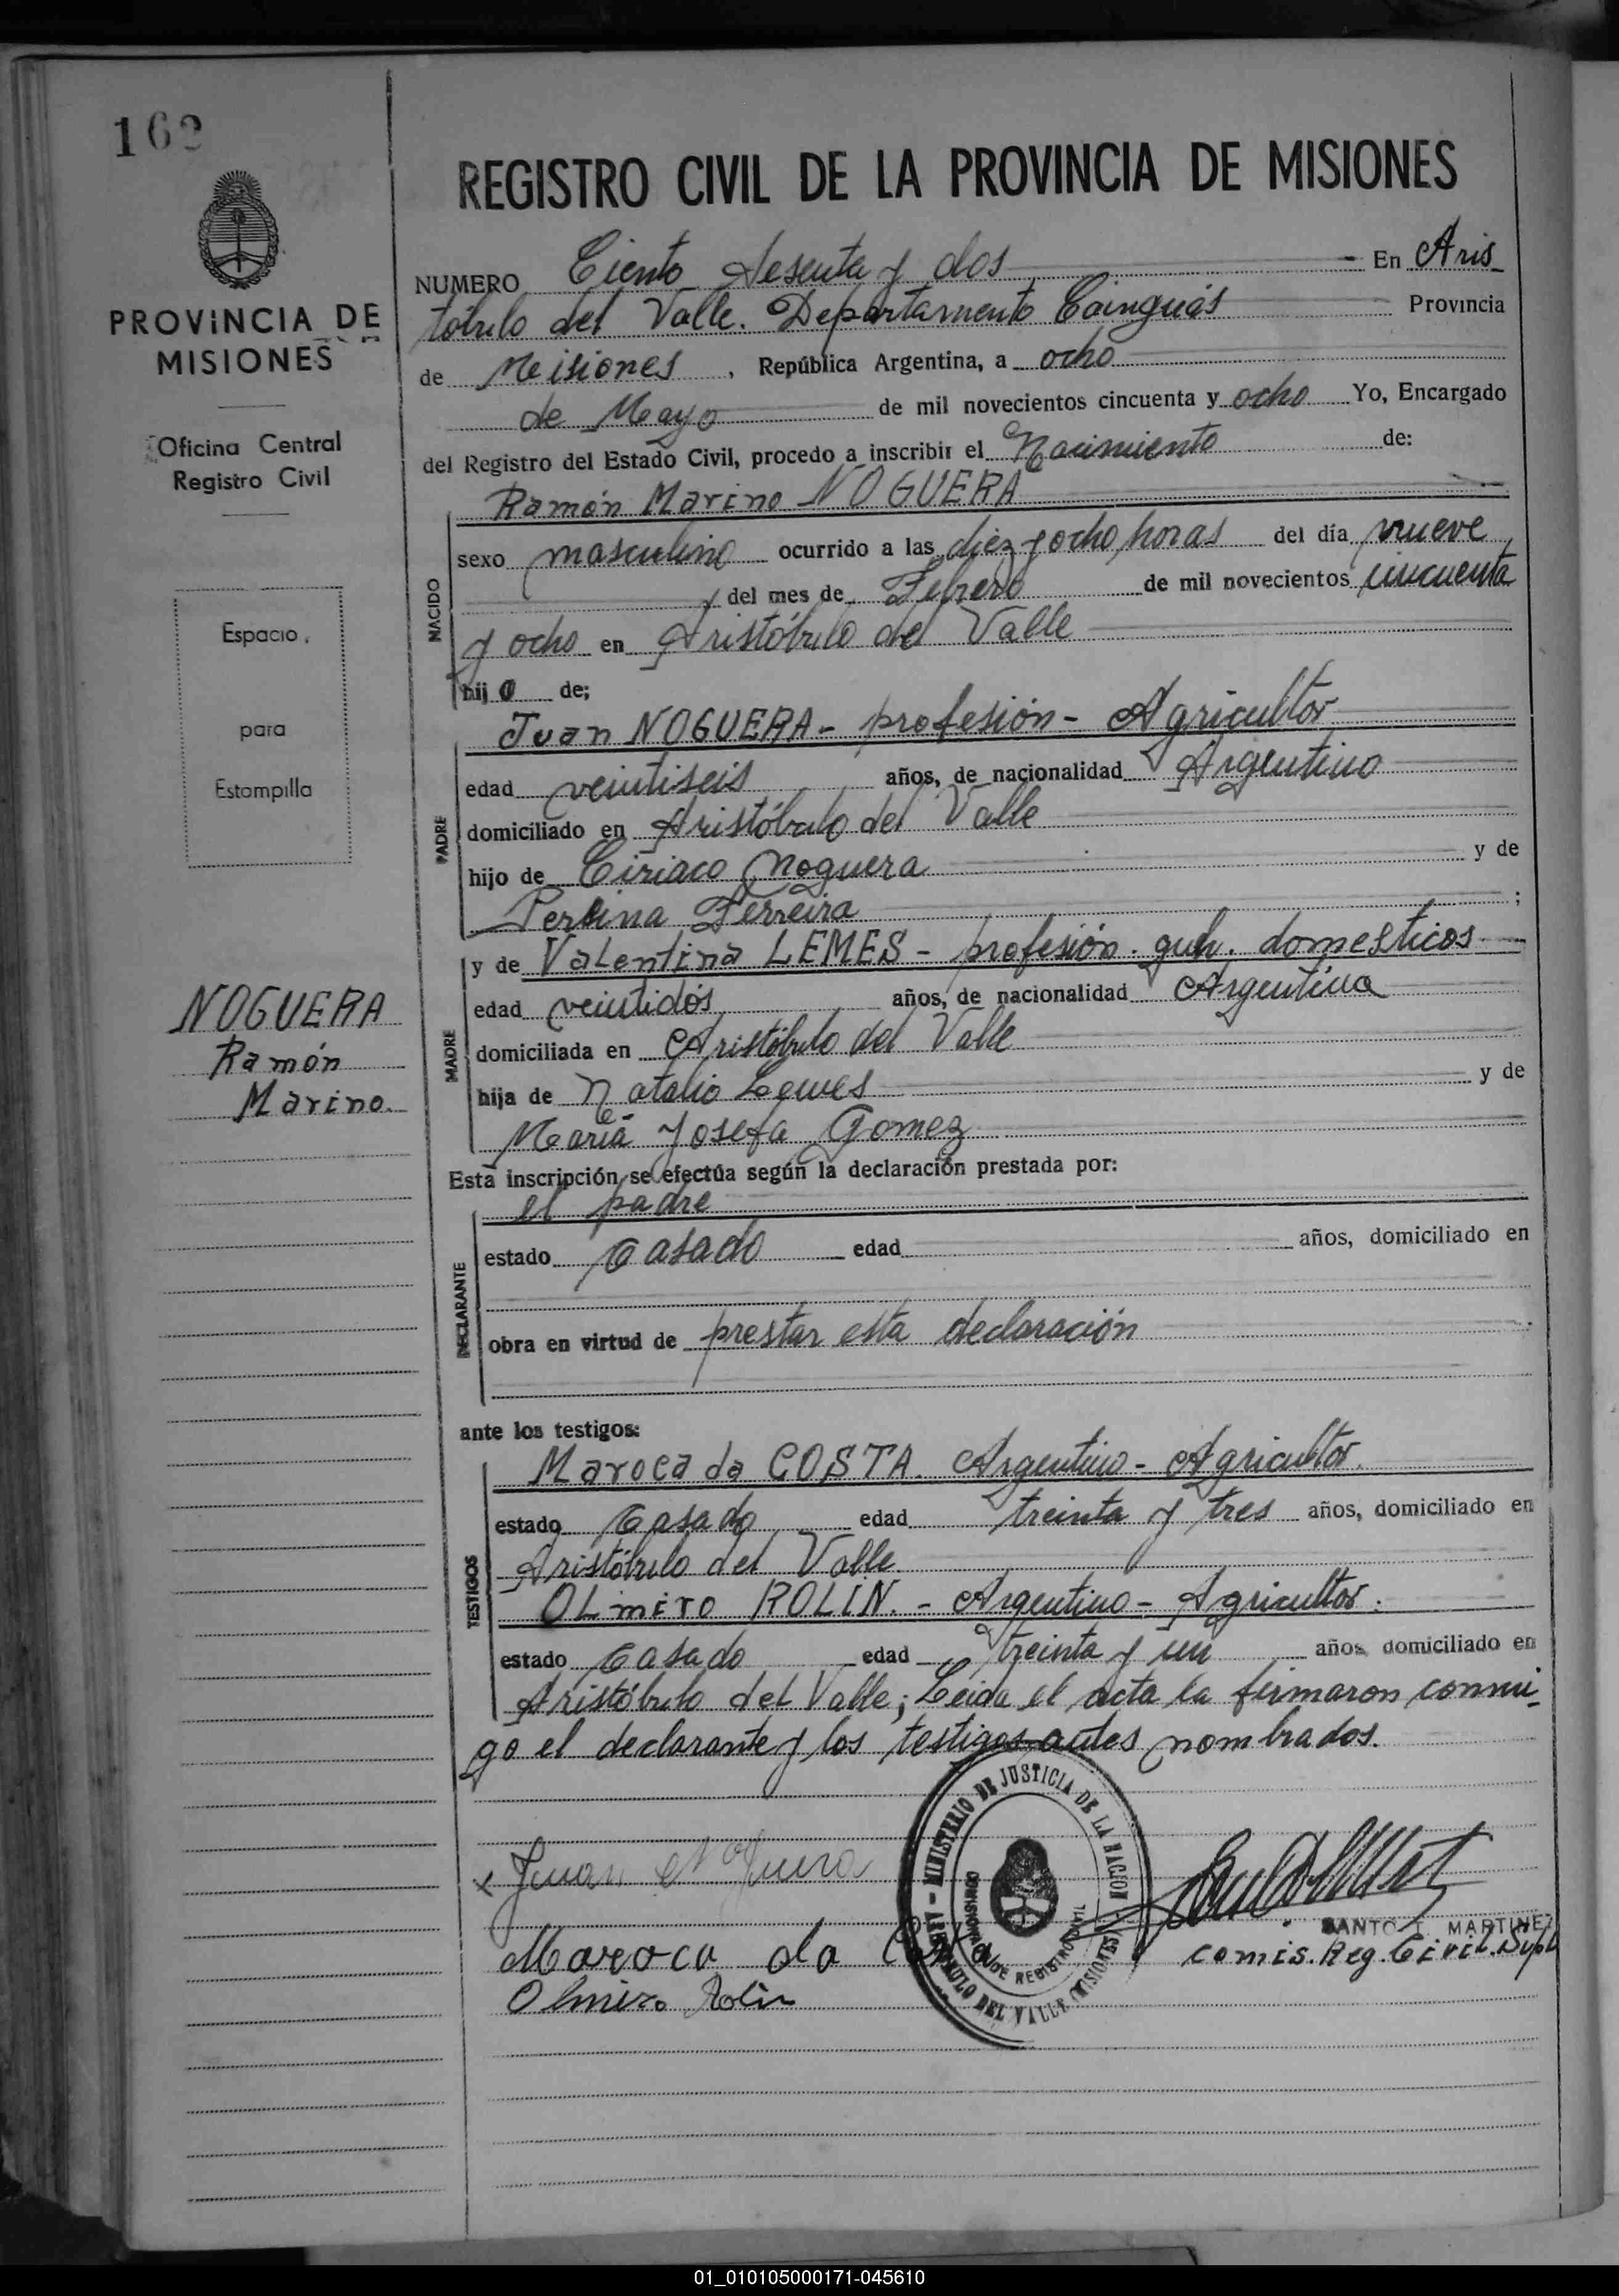 162
REGISTRO CIVIL DE LA PROVINCIA DE MISIONES
PROVINCIA DE
MISIONES
Oficina Central
Registro Civil
Espacio
para
Estampilla
NOGUERA
Ramón
Marino.
NUMERO Ciento sesenta y dos En Aris
tobulo del Valle. Departamento Cainguás Provincia
de Misiones, República Argentina, a ocho
de Mayo de mil novecientos cincuenta y ocho Yo, Encargado
del Registro del Estado Civil, procedo a inscribir el Nacimiento de:
Ramón Marino NOGUERA
NACIDO
sexo masculino ocurrido a las diez y ocho horas del día nueve
del mes de Febrero de mil novecientos cincuenta
y ocho en Aristóbulo del Valle
hijo de;
Juan NOGUERA - profesión - Agricultor
PADRE
edad veintiseis años, de nacionalidad Argentino
domiciliado en Aristóbulo del Valle
hijo de Ciriaco Noguera y de
Ferreira;
y de Valentina LEMES - profesión. queh. domesticos
MADRE
edad veintidós años, de nacionalidad Argentina
domiciliada en Aristóbulo del Valle
hija de Natalio Lemes y de
María Josefa Gomez
Esta inscripción se efectúa según la declaración prestada por:
el padre
DECLARANTE
estado casado edad años, domiciliado en
obra en virtud de prestar esta declaración
ante los testigos:
Maroca da COSTA. Argentino - Agricultor.
TESTIGOS
estado casado edad treinta y tres años, domiciliado en
Aristóbulo del Valle.
OLmiro ROLIN. - Argentino - Agricultor.
estado casado edad treinta y un años domiciliado en
Aristóbulo del Valle; Leida el acta la firmaron conmi-
go el declarante y los testigos antes nombrados.
MINISTERIO DE JUSTICIA DE LA NACION
Juan Noguera
Maroca da
Olmiro Rolin
SANTO I. MARTINEZ
comis. Reg. Civil. Supl
01_010105000171-045610